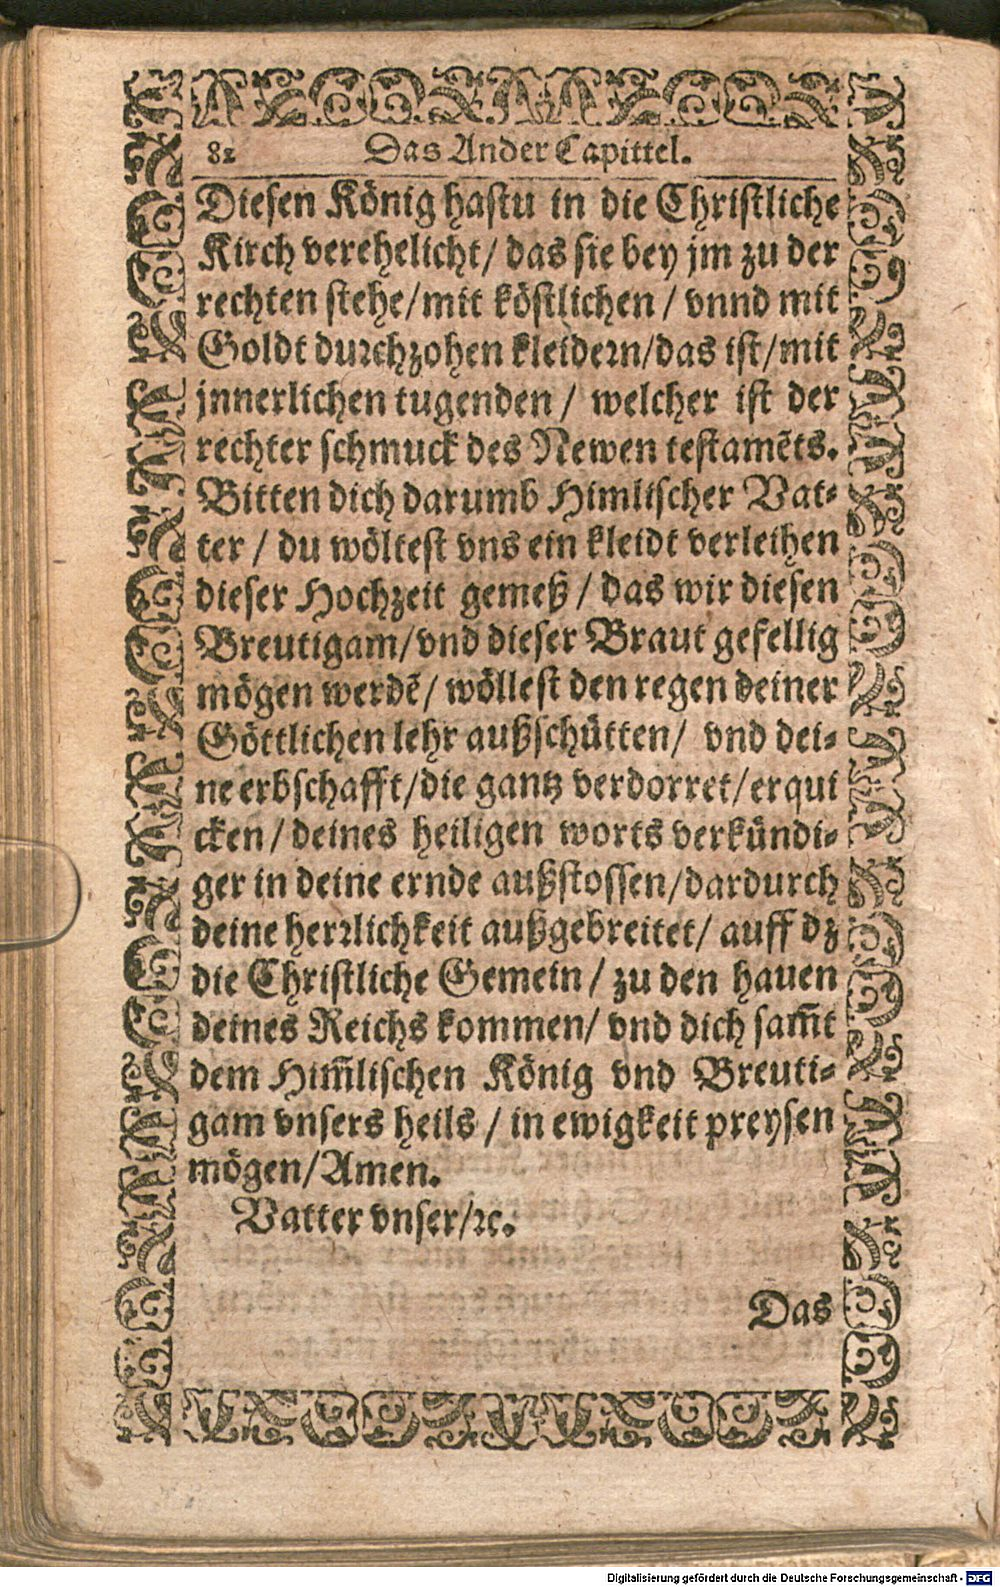 82 Das Ander Capittel.
Diesen König hastu in die Christliche
Kirch verehelicht/ das sie bey jm zu der
rechten stehe/mit köstlichen/ vnnd mit
Goldt durchzohen kleidern/das ist/mit
jnnerlichen tugenden/ welcher ist der
rechter schmuck des Newen testamēts.
Bitten dich darumb Himlischer Vat-
ter/ du wöltest vns ein kleidt verleihen
dieser Hochzeit gemeß/ das wir diesen
Breutigam/vnd dieser Braut gefellig
mögen werdē/ wöllest den regen deiner
Göttlichen lehr außschütten/ vnd dei-
ne erbschafft/die gantz verdorret/erqui
cken/deines heiligen worts verkündi-
ger in deine ernde außstossen/dardurch
deine herrlichkeit außgebreitet/ auff dz
die Christliche Gemein/ zu den hauen
deines Reichs kommen/ vnd dich sam̄t
dem Him̄lischen König vnd Breuti-
gam vnsers heils/ in ewigkeit preysen
mögen/Amen.
Vatter vnser/ꝛc.
Das
Digitalisierung gefördert durch die Deutsche Forschungsgemeinschaft - DFG